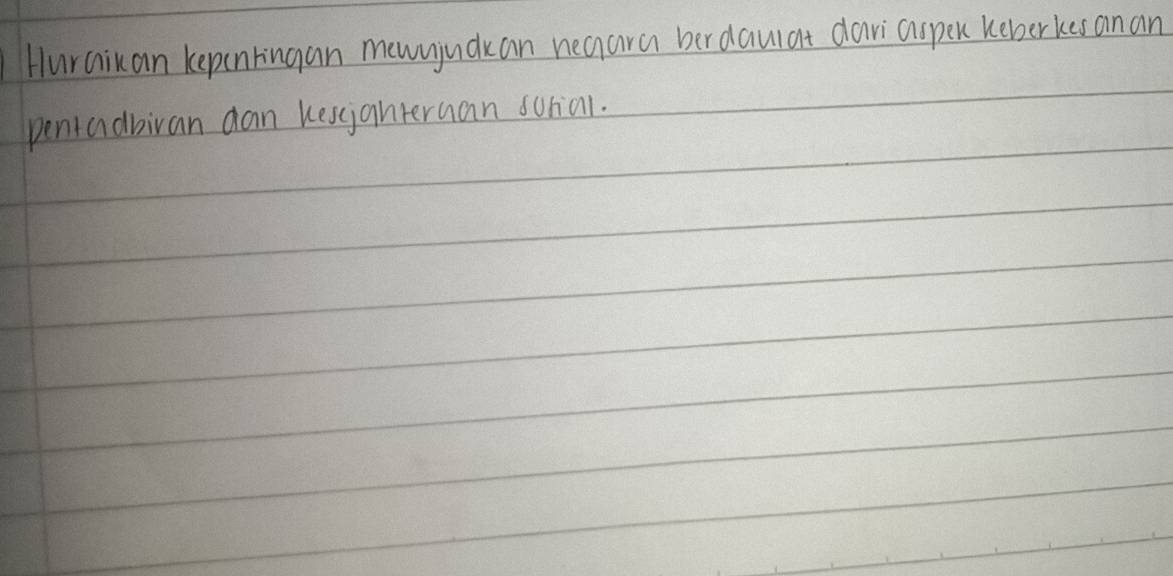 Huraikan kepentingan mewujudkan negara berdaulat dari aspek keberkesanan
pentadbiran dan kesejahteraan sosial.